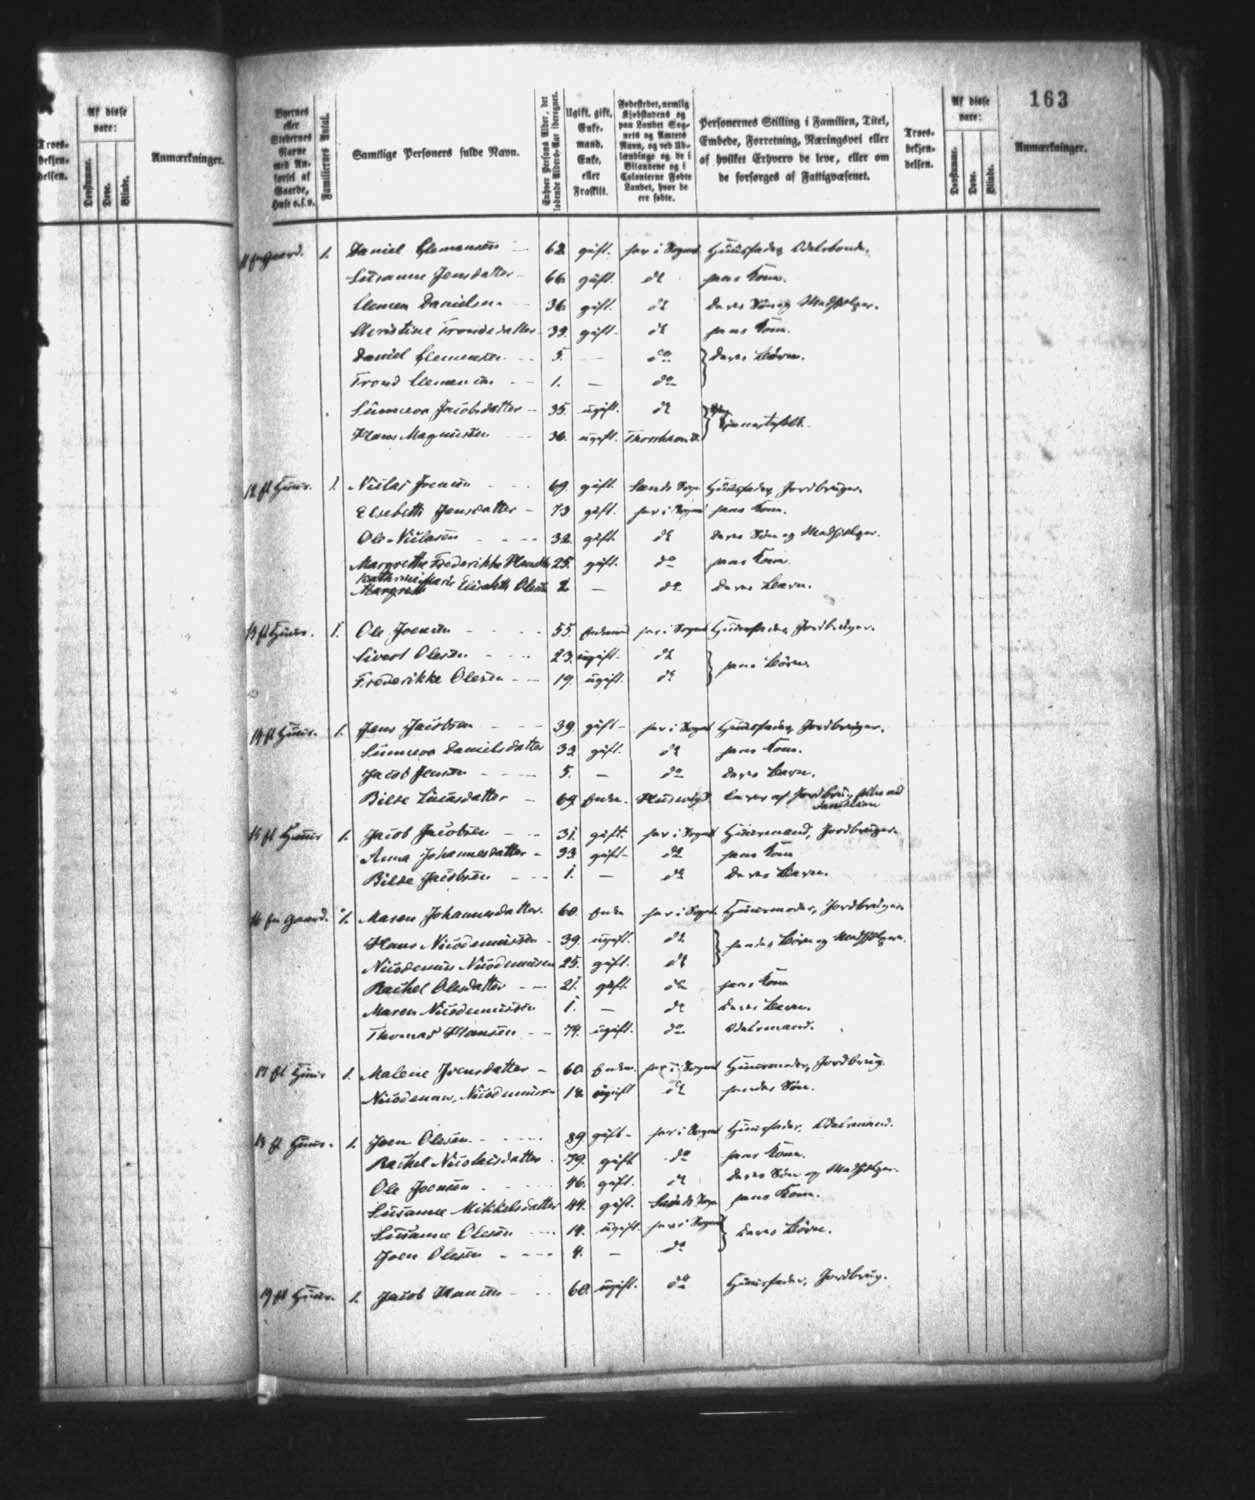 163
Af disse
være:
Troes-
bekjen-
delsen.
Døvstumme.
Døve.
Blinde.
Anmærkninger.
Byernes
eller
Stedernes
Navne
med An-
førsel af
Gaarde,
Huse o.s.v.
Familiernes Antal.
Samtlige Personers fulde Navn.
Enhver Persons Alder, det
løbende Alders-Aar iberegnet.
Ugift, gift,
Enke-
mand,
Enke,
eller
Fraskilt.
Fødestedet, nemlig
Kjøbstadens og
paa Landet Sog-
nets og Amtets
Navn, og ved Ud-
lændinge og de i
Bilandene og i
Colonierne Fødte
Landet, hvor de
ere fødte.
Personernes Stilling i Familien, Titel,
Embede, Forretning, Næringsvei eller
af hvilket Erhverv de leve, eller om
de forsørges af Fattigvæsenet.
Troes-
bekjen-
delsen.
Af disse
være:
Døvstumme.
Døve.
Blinde.
Anmærkninger.
1. Daniel Clemensen 62. gift. her i Sognet Huusfader, Odelsbonde.
Susanne Jensdatter 66. gift. do hans Kone.
Clemen Danielsen 36. gift. do deres Søn og Medhjelper.
Christine Trondsdatter 33. gift. do hans Kone.
Daniel Clemensen 5. — do deres Børn.
Trond Clemensen 1. — do
Sunneva Jacobsdatter 35. ugift. do
Hans Magnussen 36. ugift. Thorshavn Tjenestefolk.
12 Huus. 1. Niclas Joensen 69. gift. Sands Sogn Huusfader, Jordbruger.
Elsebeth Jensdatter 73 gift. her i Sognet hans Kone.
Ole Niclasen 32. gift do deres Søn og Medhjelper.
Margrethe Frederikke 25. gift. do hans Kone.
Margreth Elisabeth Olesen 2 — do deres Barn.
13 Huus. 1. Ole Joensen 55. Enkemand her i Sognet Huusfader, Jordbruger.
Sivert Olesen 23. ugift. do hans Børn.
Frederikke Olesen 19. ugift. do
14 Huus. 1. Jens Jacobsen 39. gift her i Sognet Huusfader, Jordbruger.
Sunneva Danielsdatter 32 gift. do hans Kone.
Jacob Jensen 5. — do deres Barn.
Bilde 69. Enke. lever af Jordbrug
15 Huus 1. Jacob Jacobsen 31. gift. her i Sognet Huusmand, Jordbruger.
Anna Johannesdatter 33 gift do hans Kone
Bilde Jacobsen 1. — do deres Barn.
16 Gaard. 1. Maren Johannesdatter. 60. Enke her i Sognet Huusmoder, Jordbruger.
Hans Nicodemussen 39. ugift. do hendes Børn og Medhjelpere.
Nicodemus Nicodemussen 25. gift. do
Rachel Olesdatter 21. gift. do hans Kone
Maren Nicodemussen 1. — do deres Barn.
Thomas Hansen 74. ugift. do Odelsmand.
17 Huus 1. Malene Joensdatter 60. Enke. her i Sognet Huusmoder, Jordbrug
Nicodemus Nicodemussen 18. ugift do hendes Søn.
18 Huus. 1. Joen Olesen 89 gift her i Sognet Huusfader. Odelsmand.
Rachel Nicolaisdatter 79. gift do hans Kone.
Ole Joensen 46. gift. do deres Søn og Medhjelper.
Susanne Mikkelsdatter 44. gift. Sands Sogn hans Kone.
Susanne Olesen 14. ugift. her i Sognet deres Børn.
Joen Olesen 4. — do
19 Huus. 1. Jacob Hansen 60. ugift. do Huusfader, Jordbrug.